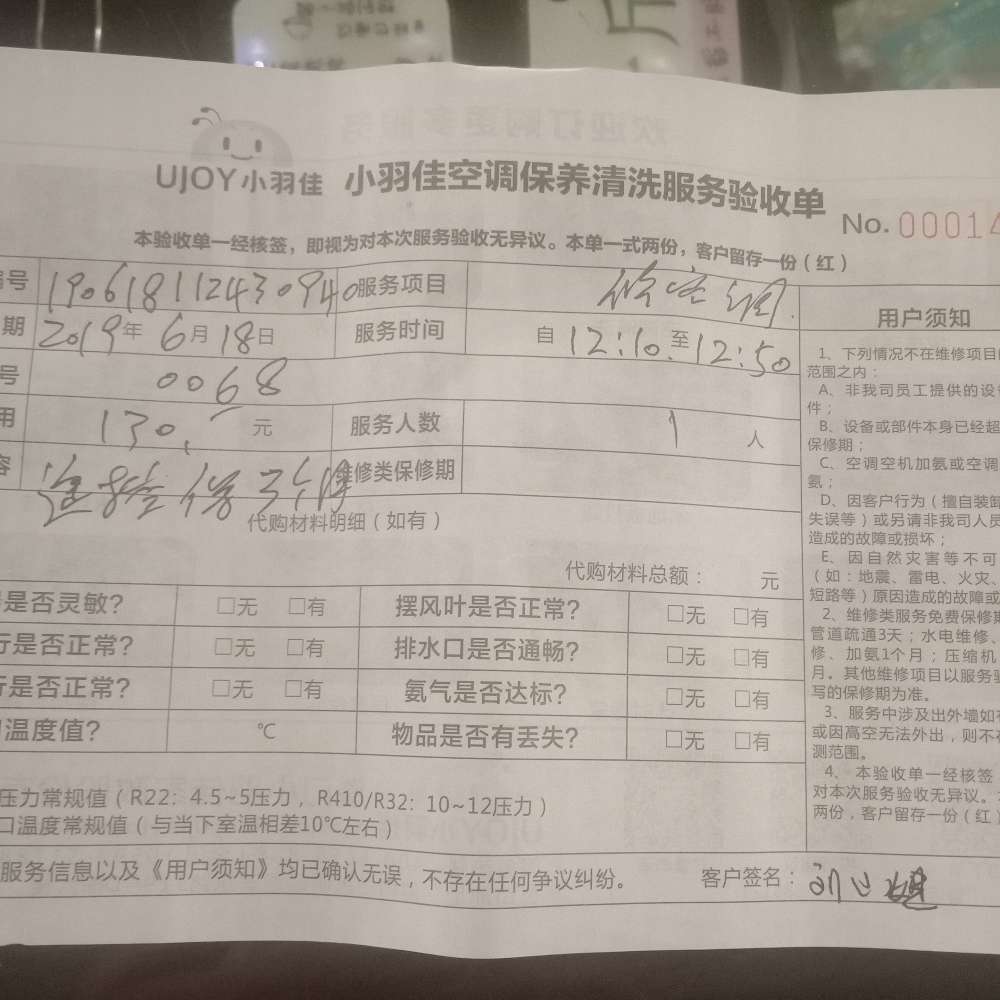 UJOY小羽佳 小羽佳空调保养清洗服务验收单
No. 00014
本验收单一经核签，即视为对本次服务验收无异议。本单一式两份，客户留存一份（红）
编号 190618112430940 服务项目 修空调
期 2019年 6月 18日 服务时间 自 12:10 至 12:50
号 0068
用 130.- 元 服务人数 1 人
容 维修类保修期
代购材料明细（如有）
代购材料总额： 元
是否灵敏? □无 □有 摆风叶是否正常? □无 □有
行是否正常? □无 □有 排水口是否通畅? □无 □有
行是否正常? □无 □有 氨气是否达标? □无 □有
温度值? ℃ 物品是否有丢失? □无 □有
压力常规值（R22: 4.5~5压力，R410/R32: 10~12压力）
口温度常规值（与当下室温相差10℃左右）
服务信息以及《用户须知》均已确认无误，不存在任何争议纠纷。 客户签名：
用户须知
1、下列情况不在维修项目
范围之内：
A、非我司员工提供的设
件；
B、设备或部件本身已经超
保修期；
C、空调空机加氨或空调
氨；
D、因客户行为（擅自装卸
失误等）或另请非我司人员
造成的故障或损坏；
E、因自然灾害等不可
（如：地震、雷电、火灾、
短路等）原因造成的故障或
2、维修类服务免费保修期
管道疏通3天；水电维修、
修、加氨1个月；压缩机
月。其他维修项目以服务验
写的保修期为准。
3、服务中涉及出外墙如
或因高空无法外出，则不在
测范围。
4、本验收单一经核签
对本次服务验收无异议。
两份，客户留存一份（红）